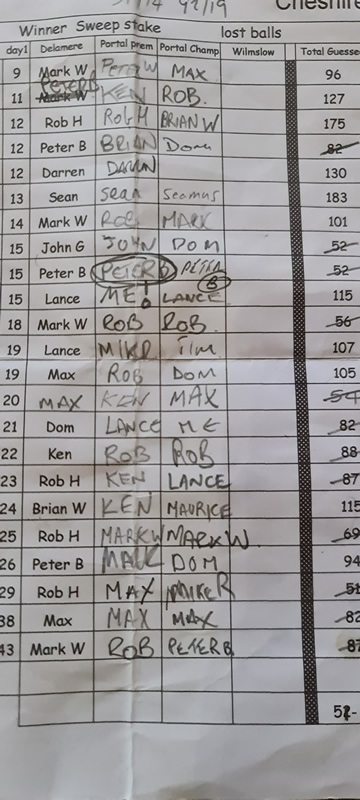 Cheshire
Winner Sweep stake lost balls
day1 Delamere Portal prem Portal Champ Wilmslow Total Guesse
9 Mark W PETER W MAX 96
PETER B
11 Mark W KEN ROB. 127
12 Rob H ROB H BRIAN W 175
12 Peter B BRIAN Dom 82
12 Darren DARREN 130
13 Sean Sean Seamus 183
14 Mark W ROB MARK 101
15 John G JOHN DOM 52
15 Peter B PETER B PETER B 52
15 Lance ME! LANCE 115
18 Mark W ROB ROB. 56
19 Lance MIKE Tim 107
19 Max ROB DOM 105
20 MAX KEN MAX 54
21 Dom LANCE ME 82
22 Ken ROB ROB 88
23 Rob H KEN LANCE 87
24 Brian W KEN MAURICE 115
25 Rob H MARK W MARK W. 69
26 Peter B MARK DOM 94
29 Rob H MAX MIKE R 51
38 Max MAX MAX 82
43 Mark W ROB PETER B 87